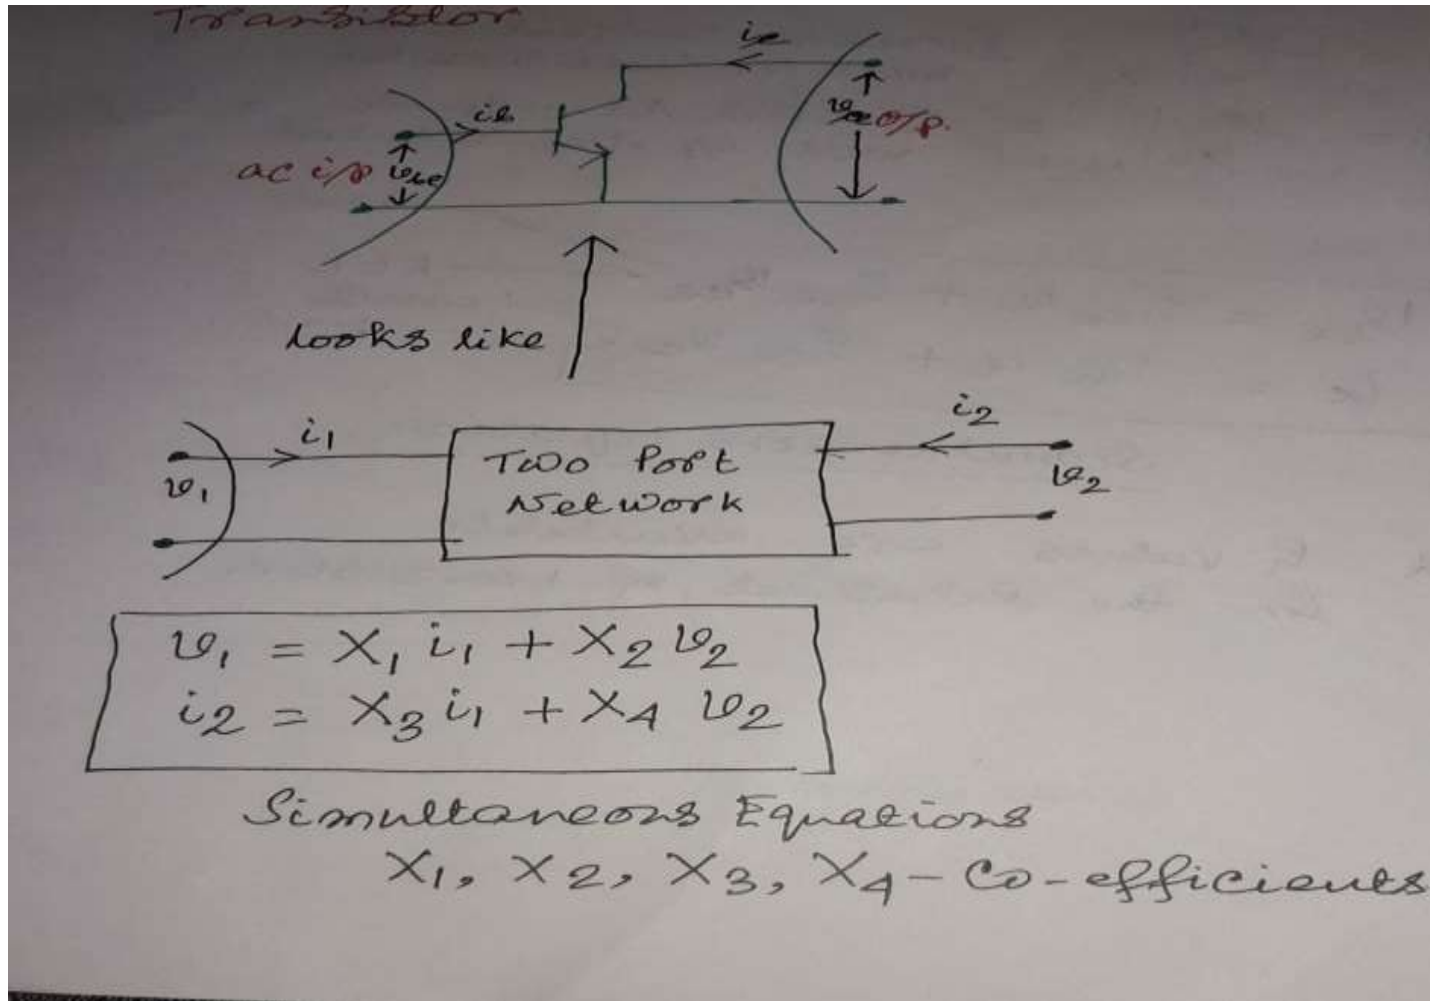 Transistor
ic
ib
ac i/p vbe
o/p.
looks like
i1
i2
v1
Two Port
Network
v2
v1 = X1 i1 + X2 v2
i2 = X3 i1 + X4 v2
Simultaneous Equations
X1, X2, X3, X4 - Co-efficients